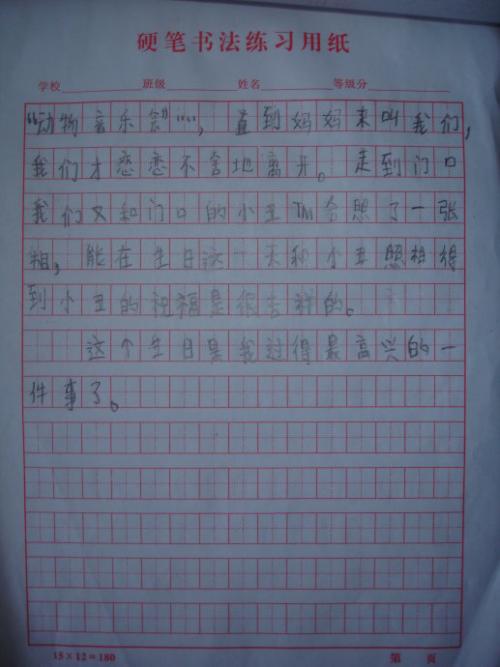 硬笔书法练习用纸
学校 班级 姓名 等级分
“动物音乐会”……，直到妈妈来叫我们，
我们才恋恋不舍地离开。走到门口
我们又和门口的小丑TM合照了一张
相，能在生日这一天和小丑照相得
到小丑的祝福是很吉祥的。
这个生日是我过得最高兴的一
件事了。
15×12=180 第 页